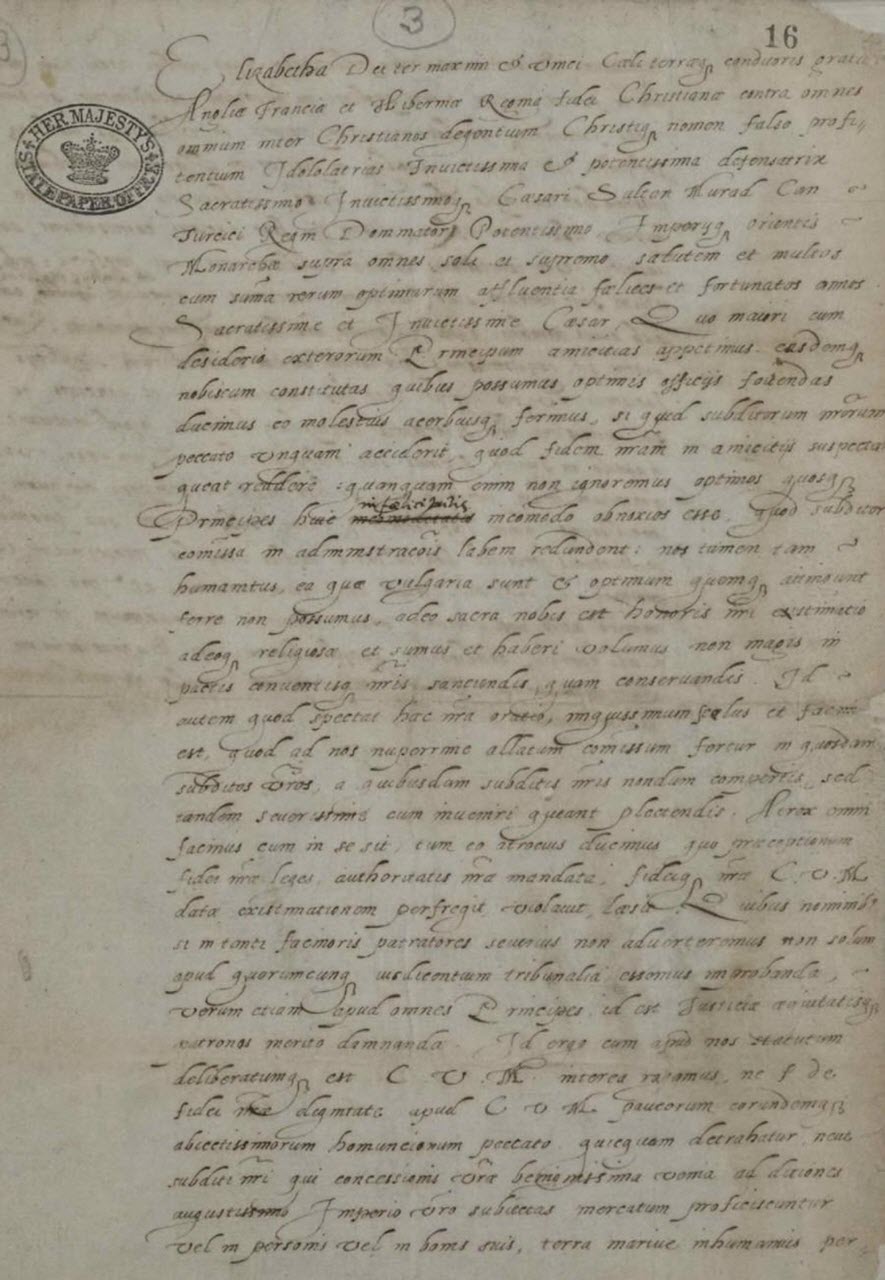 3
16
HER MAJESTY'S STATE PAPER OFFICE
Elizabetha Dei ter maximi et unici Cæli terræq conditoris gratia
Angliæ Franciæ et Hiberniæ Regina fidei Christianæ contra omnes
omnium inter Christianos degentium Christiq nomen falso profi
tentium Idololatrias Invictissima et potentissima defensatrix
Sacratissimo Invictissimoq Cæsari Sultan Murad Can
Turcici Regni Dominatori Potentissimo, Imperijq orientis
Monarchæ supra omnes soli et supremo salutem et multos
cum summa rerum optimarum affluentia fælices et fortunatos annos.
Sacratissime et Invictissime Cæsar, Quo maiori cum
desiderio exterorum Principum amicitias appetimus easdemq
nobiscum constitutas quibus possumus optimis officijs fovendas
ducimus eo molestius acerbiusq ferimus, si quid subditorum nrorum
peccato unquam acciderit, quod fidem nram in amicitijs suspectam
queat reddere: quanquam enim non ignoremus optimos quosq
Principes huic infælici incomodo obnoxios esse, quod subditor
comissa in administracois labem redundent: nos tamen tam
humanitus, ea quæ vulgaria sunt et optimum quemq
ferre non possumus, adeo sacra nobis est honoris nri existimatio
adeoq religiosæ et sumus et haberi volumus non magis in
pactis conventisq nris sanciendis, quam conservandis. Id
autem quod spectat hæc nra oratio, iniquissimum scelus et facinus
est, quod ad nos nuperrime allatum comissum fertur in quosdam
subditos vros, a quibusdam subditis nris nondum compertis, sed
tandem severissime cum inveniri queant plectendis. Atrox omni
facinus cum in se sit, tum eo atrocius ducimus quo præceptionum
fidei nræ leges, authoritatis nræ mandata, fideiq nræ C. V. M
datæ existimationem perfregit, violavit, læsit. Quibus nominibꝰ
si in tanti facinoris patratores severius non adverteremus non solum
apud quorumcunq iusdicentium tribunalia essemus improbanda,
verum etiam apud omnes Principes, id est Justiciæ æquitatisq
patronos merito damnanda. Id ergo cum apud nos statutum
deliberatumq est C. V. M. interea rogamus, ne de
fidei nræ dignitate apud C V M paucorum eorundemq
abiectissimorum homuncionum peccato quicquam detrahatur, neve
subditi nri qui concessionis vræ benignissima venia ad ditiones
augustissimo Imperio vro subiectas mercatum proficiscuntur
vel in personis vel in bonis suis, terra marive inhumanius per